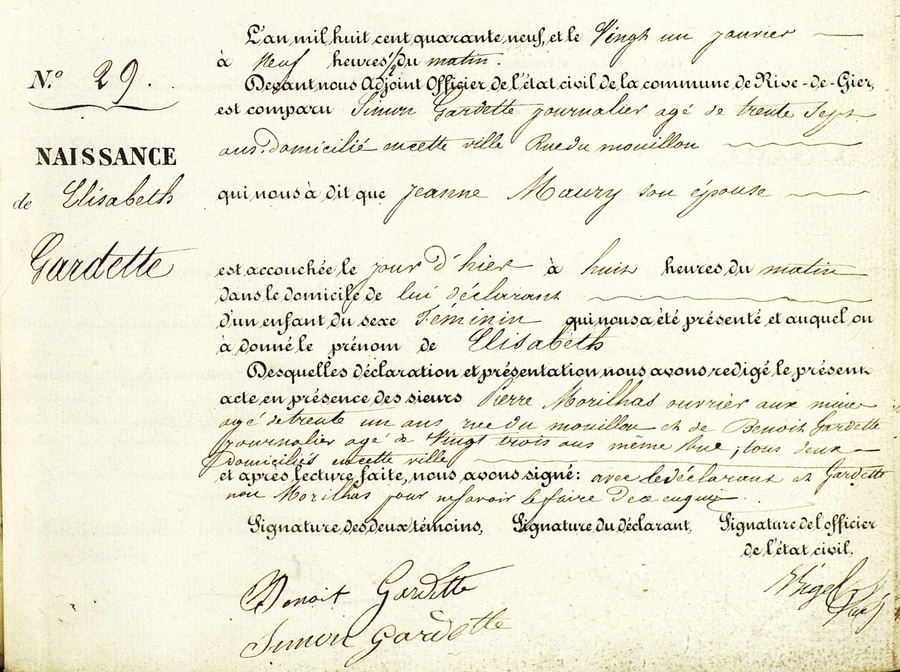 N.º 29.
NAISSANCE
de Elisabeth
Gardette
L'an mil huit cent quarante neuf, et le Vingt un janvier
à neuf heures 1/2 du matin.
Devant nous Adjoint Officier de l'état civil de la commune de Rive-de-Gier,
est comparu Simon Gardette journalier agé de trente Sept
ans, domicilié en cette ville Rue du mouillon
qui nous à dit que Jeanne Maury son épouse
est accouchée le jour d'hier à huit heures du matin
dans le domicile de lui déclarant
d'un enfant du sexe Féminin qui nous a été présenté et auquel on
à donné le prénom de Elisabeth
Desquelles déclaration et présentation nous avons redigé le présent
acte en présence des sieurs Pierre Morilhas ouvrier aux mines
agé de trente un ans rue du mouillon et de Benoit Gardette
journalier agé de Vingt trois ans même Rue, tous deux
domiciliés en cette ville
et après lecture faite, nous avons signé: avec le déclarant et Gardette
non Morilhas pour ne savoir le faire de ce enquis.
Signature des deux témoins, Signature du déclarant, Signature de l'officier
de l'état civil,
Benoit Gardette
Simon Gardette